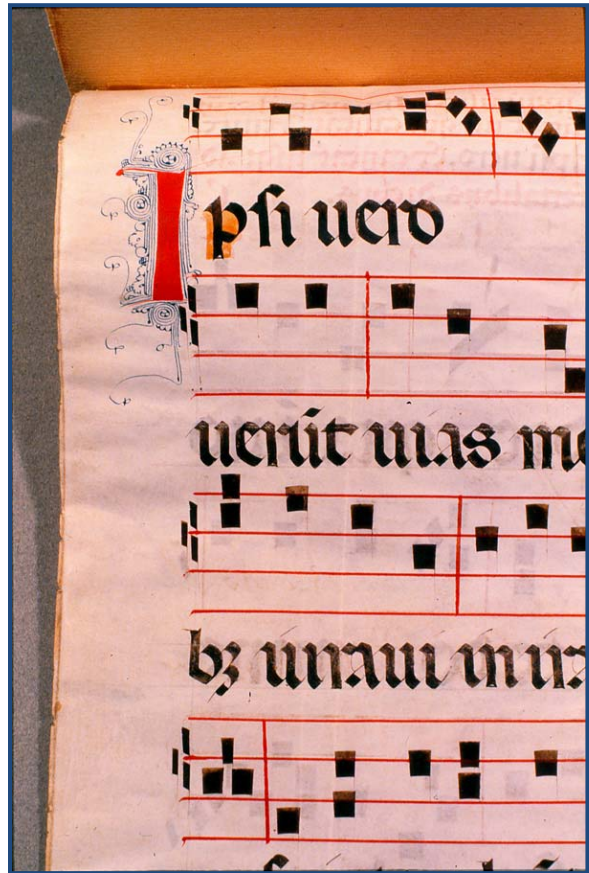 Ipsi uero
uerūt uias me
bꝫ iuraui in ira